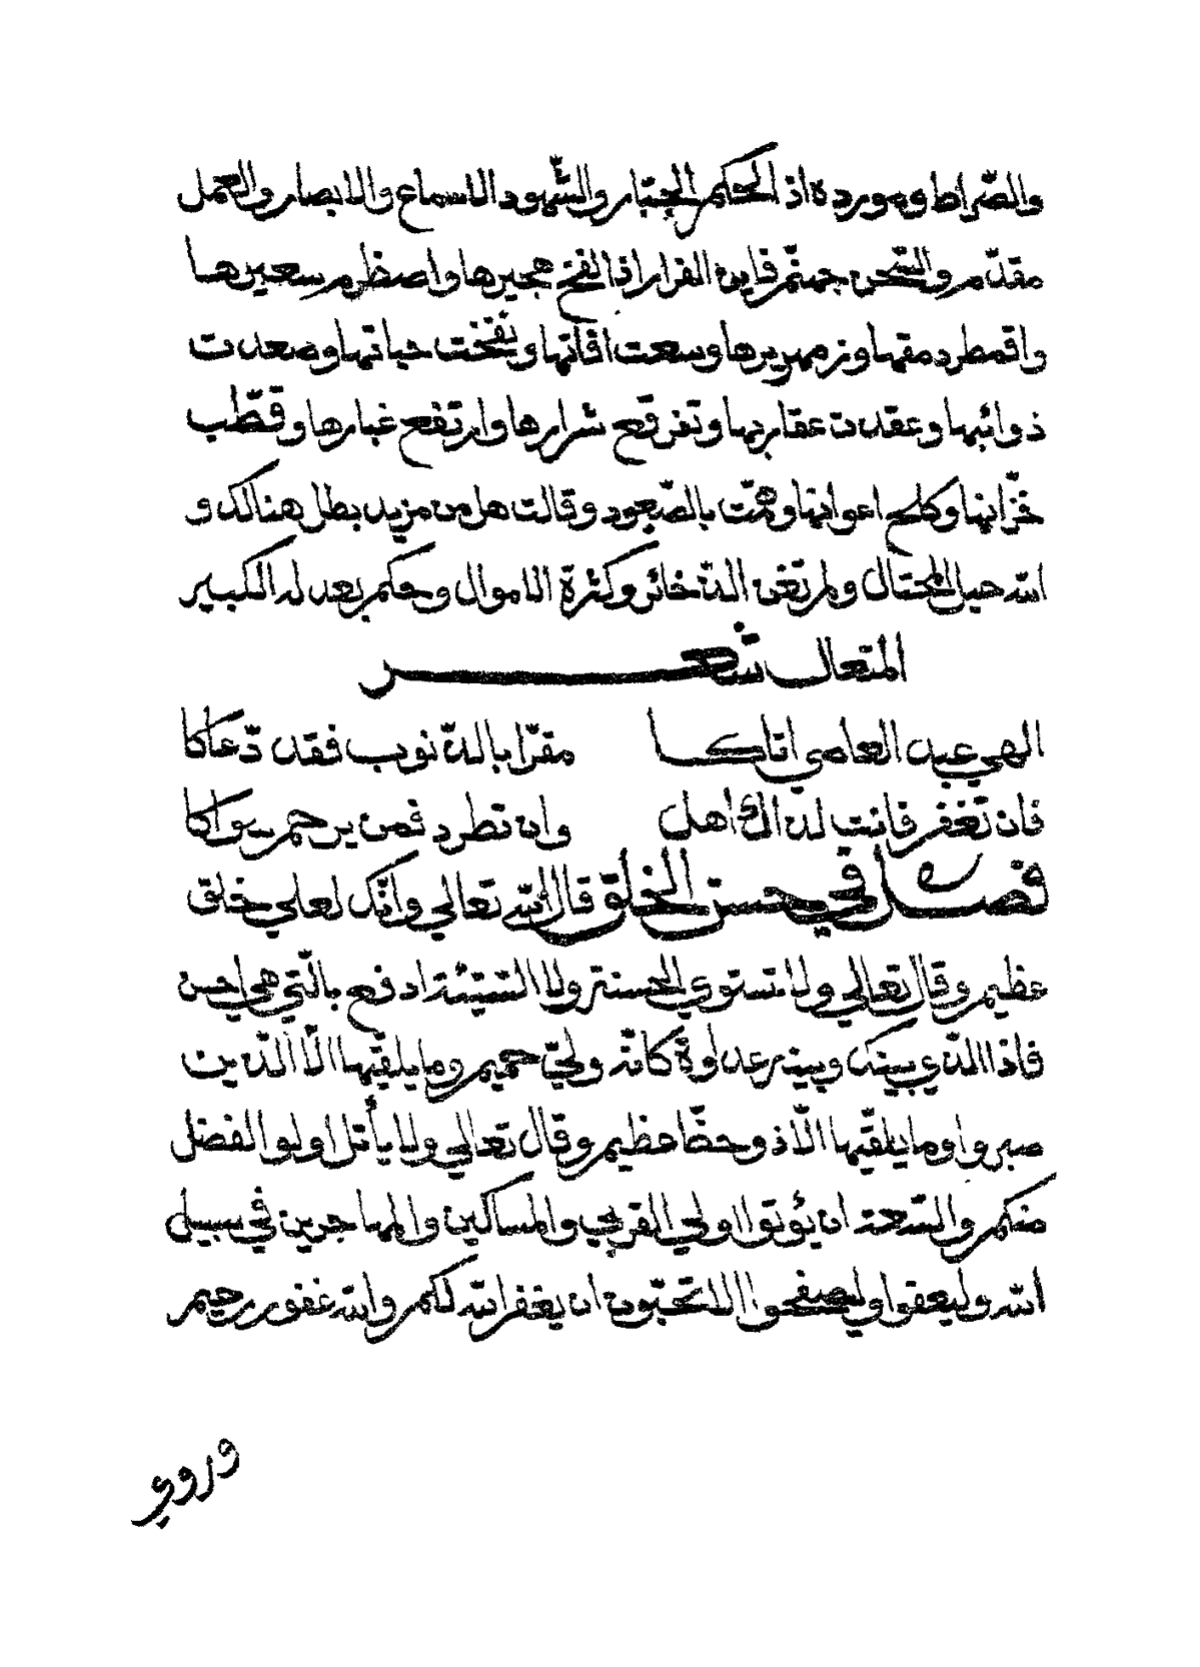 والصّراط وموردة اذ الحكم الجبّار والشّهود الاسماع والابصار والعمل
مقدّم والسّجن جهنّم فاين القرار اذا لفح هجيرها واضطرم سعيرها
واقمطر دمقها وزمهريرها وسعت افاتها ونفخت حياتها وصعدت
ذوائبها وعقدت عقاربها وتفرقع شرارها وارتفع غبارها وقطّب
خزّانها وكلح اعوانها وهمّت بالصّعود وقالت هل من مزيد بطل هنالك و
الله حيل المحتال ولم تغن الذّخائر وكثرة الاموال وحكم بعدله الكبير
المتعال شعر
الهي عبدك العاصي اتاكا مقرّا بالذّنوب فقد دّعاكا
فان تغفر فانت لذاك اهل وان تطرد فمن يرحم سواكا
فصل في حسن الخلق قال الله تعالي وانّك لعلي خلق
عظيم وقال تعالي ولا تستوي الحسنة ولا السّيّئة ادفع بالّتي هي احسن
فاذا الّذي بينك وبينه عداوة كانّه وليّ حميم وما يلقّيها الّا الّذين
صبروا وما يلقّيها الّا ذو حظّ عظيم وقال تعالي ولا يأتل اولوا الفضل
منكم والسّعة ان يؤتوا اولي القربي والمساكين والمهاجرين في سبيل
الله وليعفوا وليصفحوا الا تحبّون ان يغفر الله لكم والله غفور رحيم
وروي